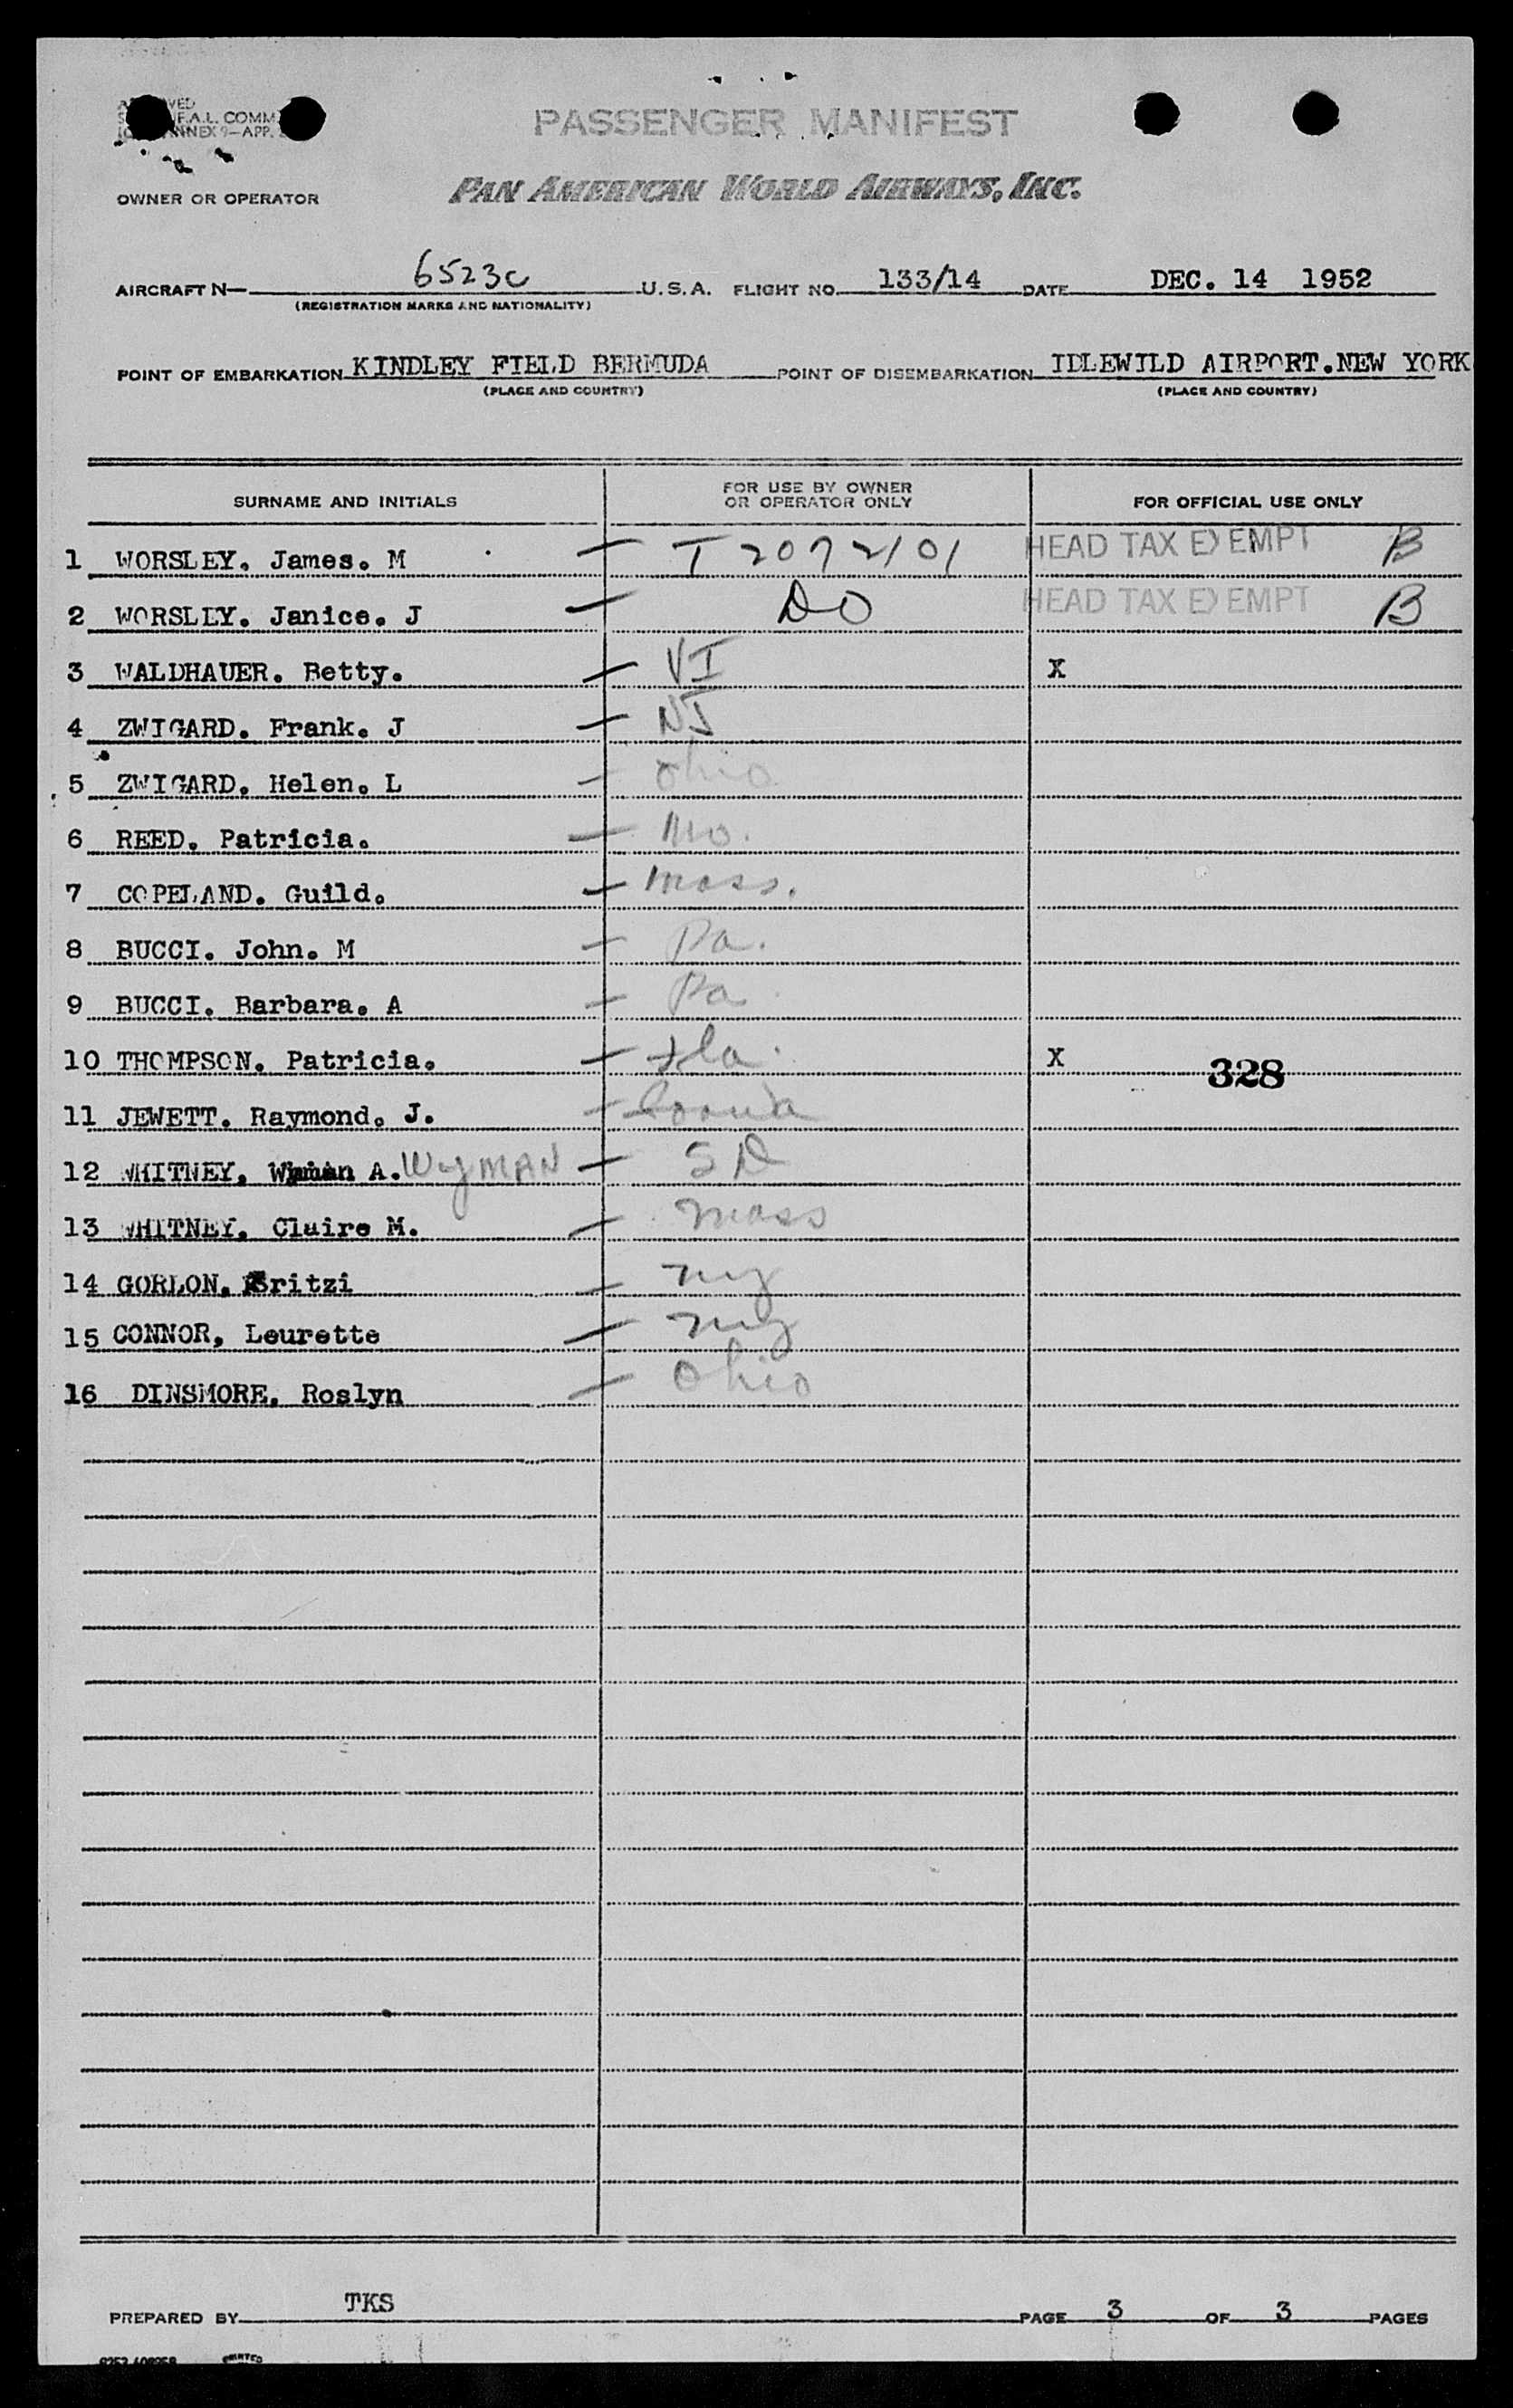 PASSENGER MANIFEST
F.A.L. COMM.
ANNEX 9—APP.
OWNER OR OPERATOR PAN AMERICAN WORLD AIRWAYS, INC.
AIRCRAFT N— 6523C U.S.A. FLIGHT NO. 133/14 DATE DEC. 14 1952
(REGISTRATION MARKS AND NATIONALITY)
POINT OF EMBARKATION KINDLEY FIELD BERMUDA POINT OF DISEMBARKATION IDLEWILD AIRPORT.NEW YORK
(PLACE AND COUNTRY) (PLACE AND COUNTRY)
SURNAME AND INITIALS FOR USE BY OWNER OR OPERATOR ONLY FOR OFFICIAL USE ONLY
1 WORSLEY. James. M — T 2072101 HEAD TAX EXEMPT B
2 WORSLEY. Janice. J — DO HEAD TAX EXEMPT B
3 WALDHAUER. Betty. — VI X
4 ZWIGARD. Frank. J — NJ
5 ZWIGARD. Helen. L — Ohio
6 REED. Patricia. — Mo.
7 COPELAND. Guild. — Mass.
8 BUCCI. John. M — Pa.
9 BUCCI. Barbara. A — Pa
10 THOMPSON. Patricia. — Fla. X 328
11 JEWETT. Raymond. J. —
12 WHITNEY. A. WYMAN — SD
13 WHITNEY. Claire M. — Mass
14 GORLON. ritzi — ny
15 CONNOR, Leurette — ny
16 DINSMORE. Roslyn — Ohio
PREPARED BY TKS PAGE 3 OF 3 PAGES
PRINTED